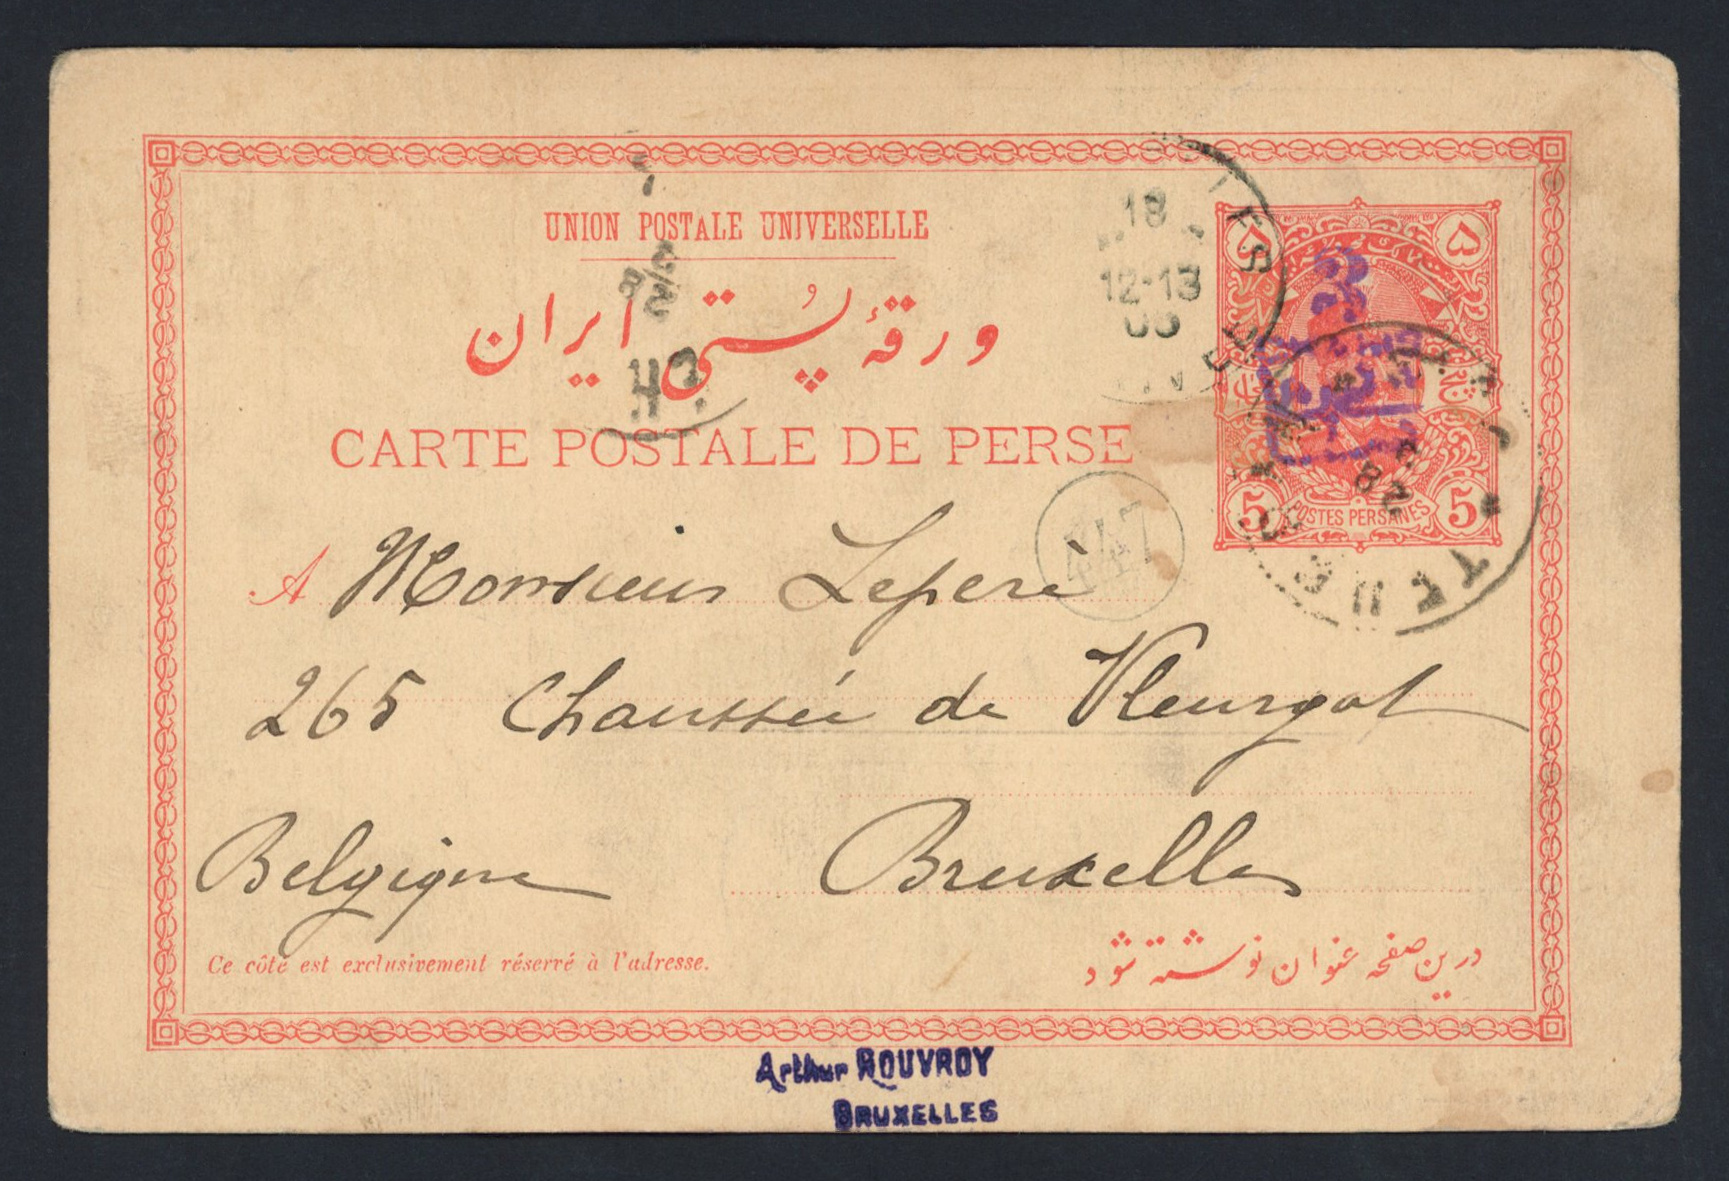 UNION POSTALE UNIVERSELLE
ورقهٔ پُستی ایران
CARTE POSTALE DE PERSE
18
12-13
۵ ۵
5 POSTES PERSANES 5
28
447
A Monsieur Leperè
265 Chaussée de Vleurgat
Bruxelles
Belgique
Ce côté est exclusivement réservé à l'adresse.
درین صفحه عنوان نوشته شود
Arthur ROUVROY
BRUXELLES